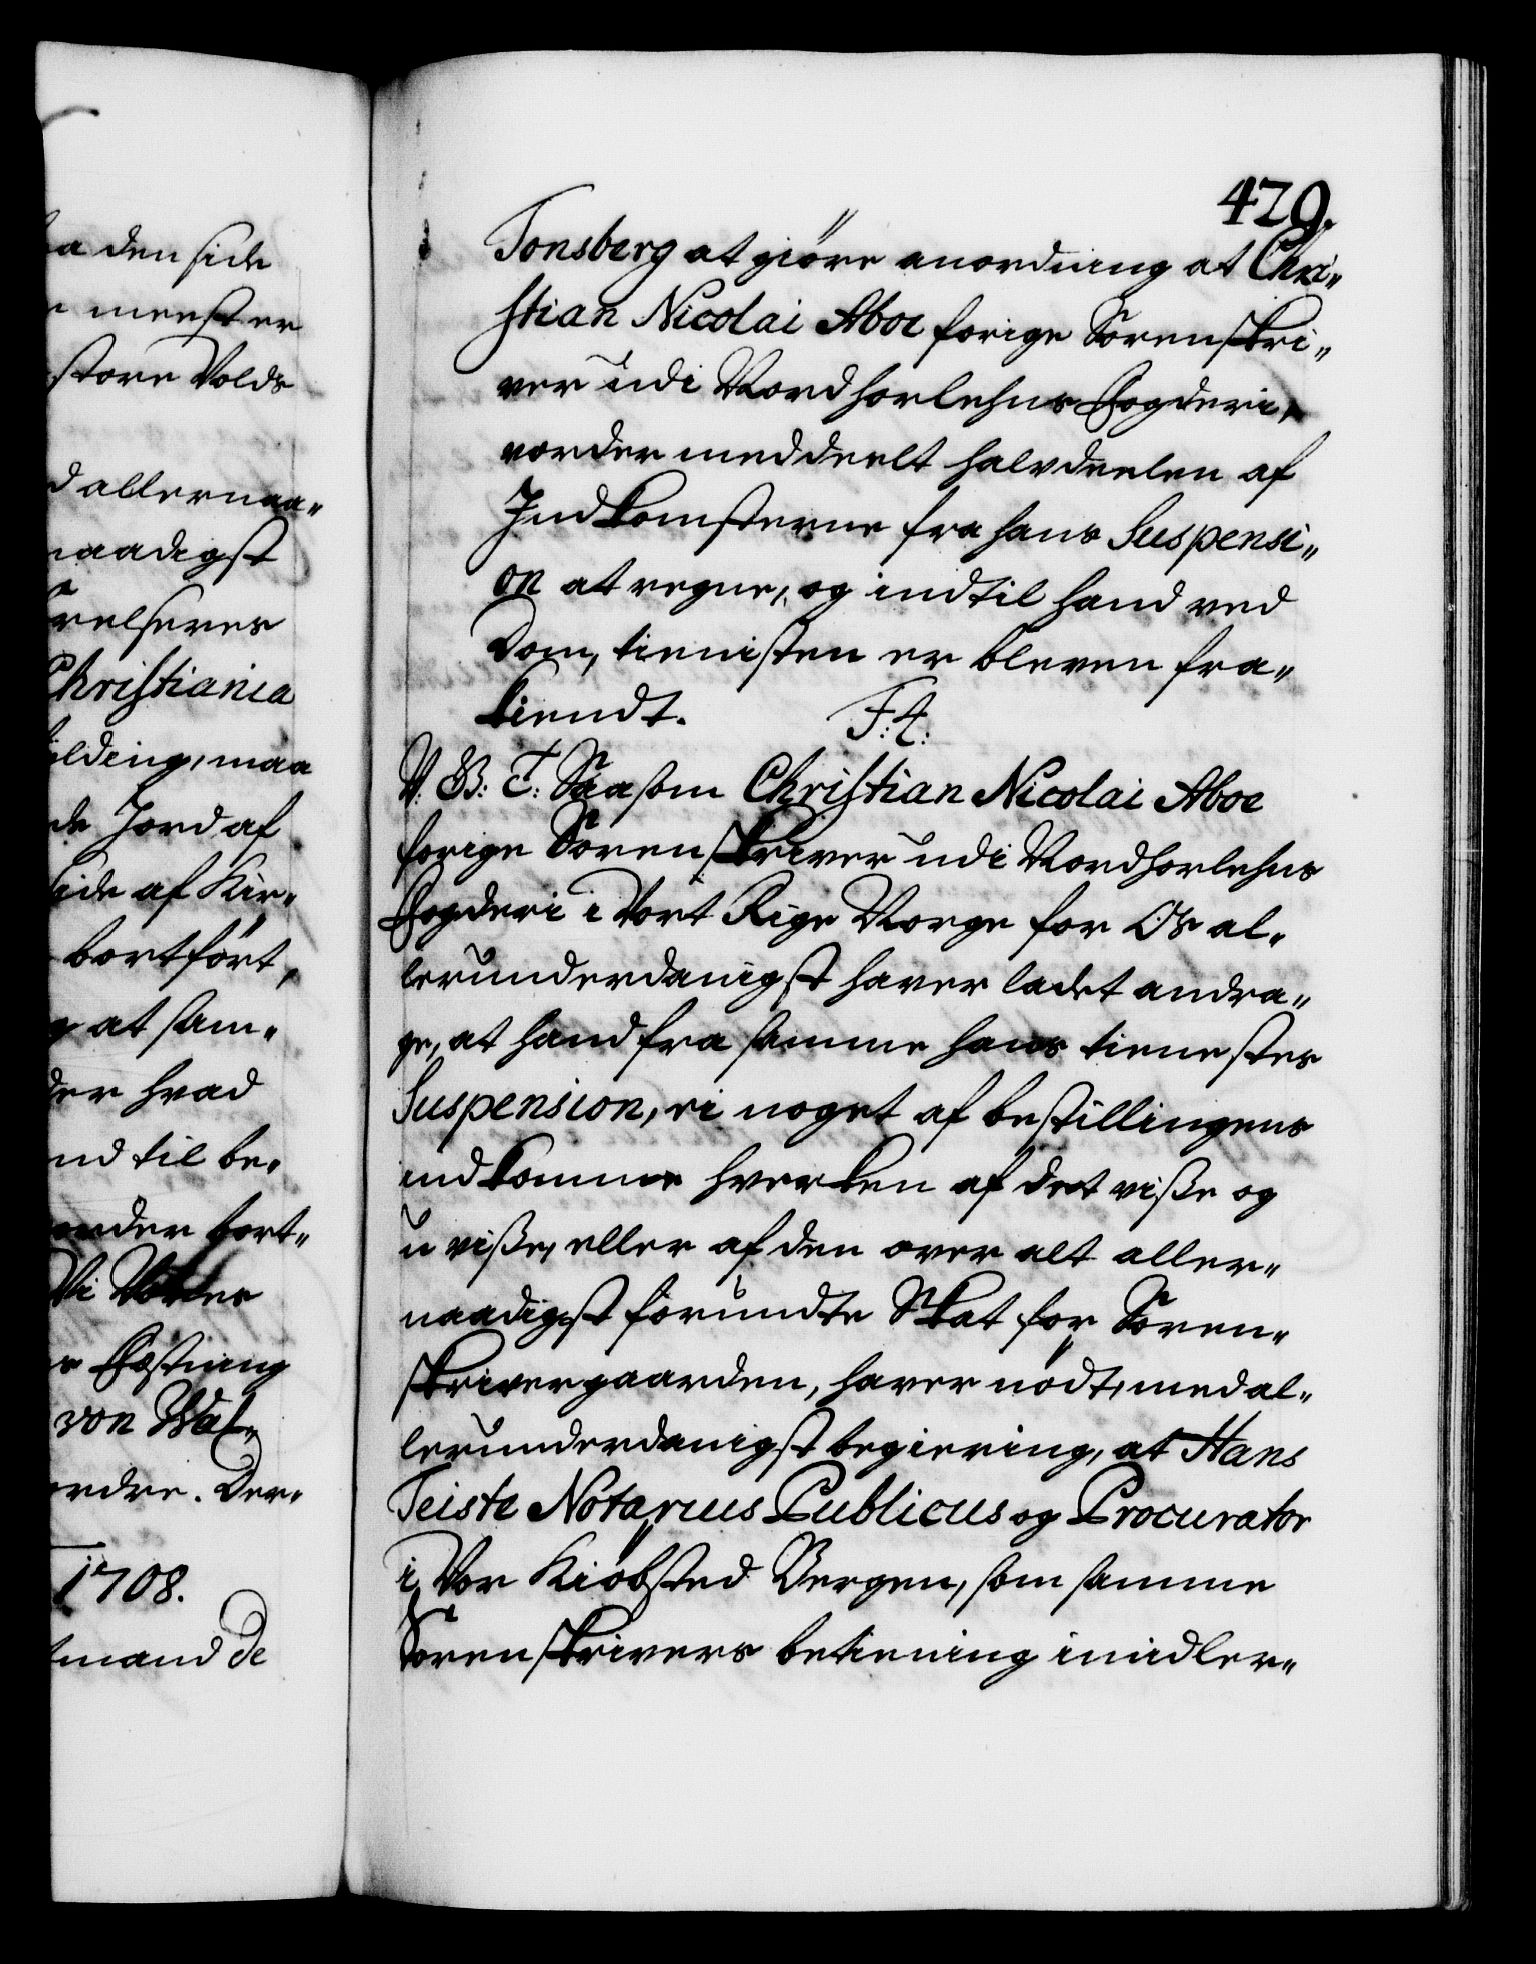 aa den side
meest er
store Volds
d allernaa„
naadigst
relserer
Christiania
ilding, maa
de Jord af
side af Kir„
bortført,
at sam„
der hvad
nd til be„
under bort„
Vi
Fæstning
von
ordre. Der„
1708.
tmand De
429.
Tonsberg at giöre anordning at Chri„
stian Nicolai Aboe forige Sorenskri„
ver udi Nordhorlehns Fogderi,
vorder meddeelt halvdeelen af
Indkomsterne fra hans Suspensi„
on at regne, og indtil hand ved
Dom, tienisten er bleven fra„
kiendt. F: 4:
V: G: T: Saasom Christian Nicolai Aboe
forige Sorenskriver udi Nordhorlehns
Fogderi i Vort Rige Norge for Os al„
lerunderdanigst haver ladet andra„
ge, at hand fra samme hans tienestes
Suspension, ei noget af bestillingens
indkomme hverken af det visse og
u visse, eller af den over alt aller„
naadigst forundte Skat for Soren„
skrivergaarden, haver nödt, med al„
lerunderdanigst begiering, at Hans
Teiste Notarius Publicus og Procurator
i Vor Kiöbsted Bergen, som samme
Sorenskrivers betiening imidler„